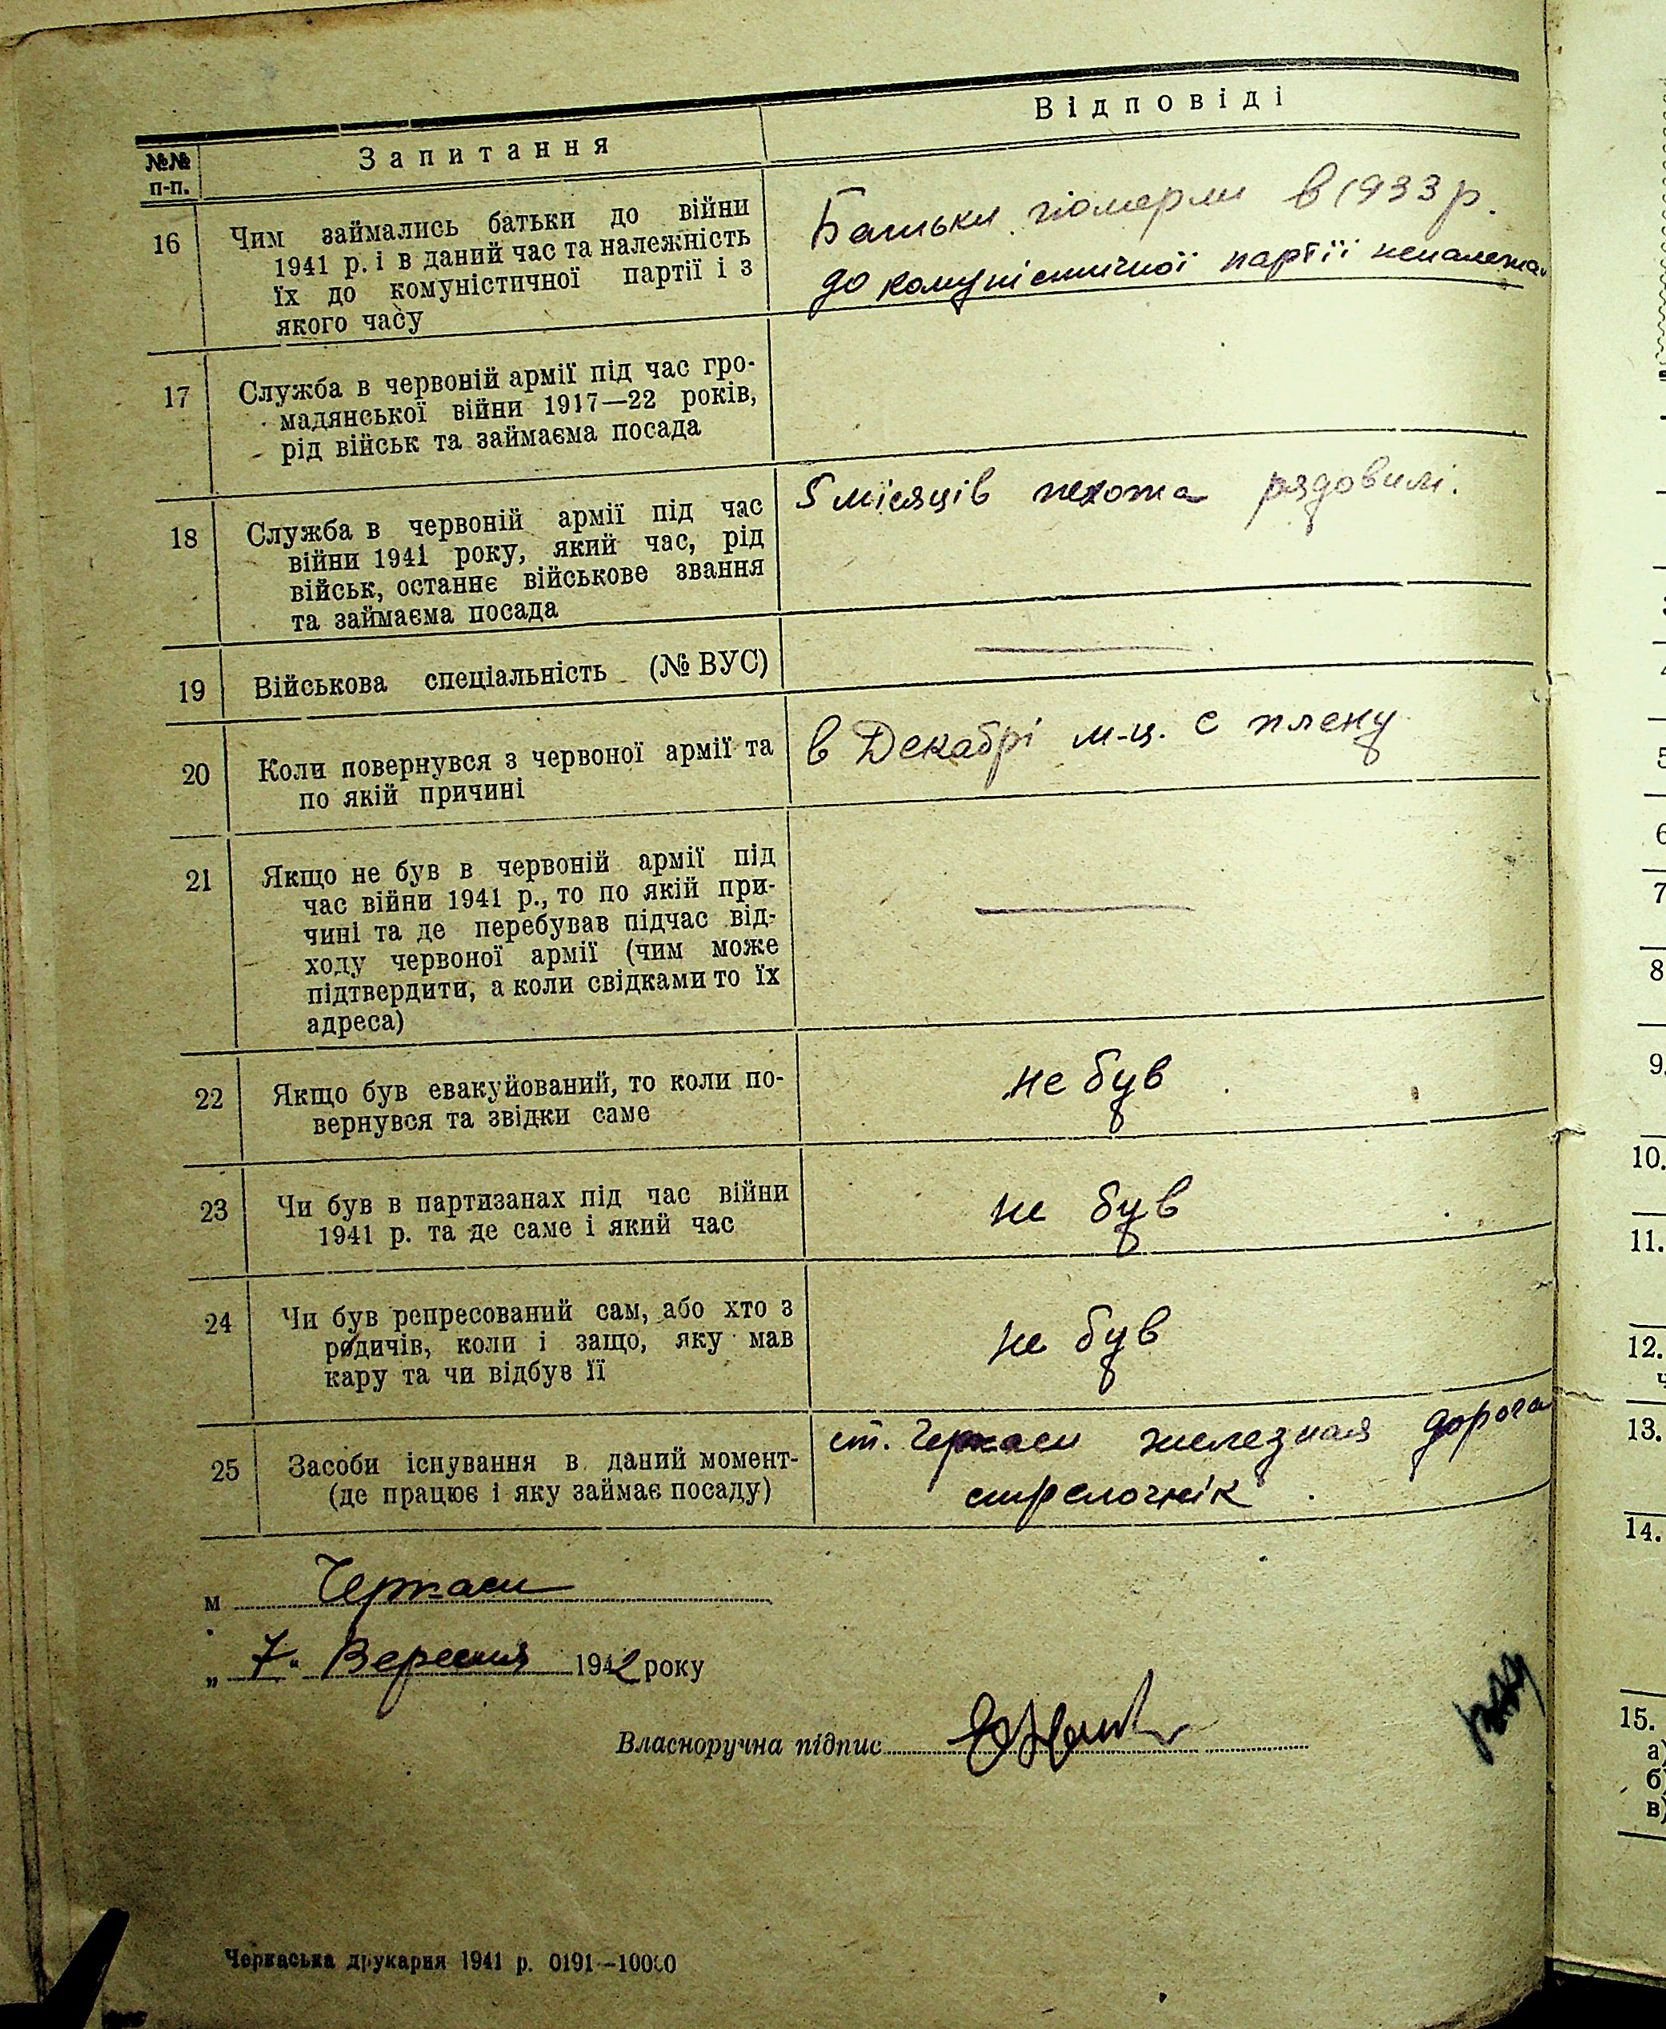 №№ п-п.
Запитання
Відповіді
16
Чим займались батьки до війни
1941 р. і в даний час та належність
їх до комуністичної партії і з
якого часу
Батьки померли в 1933 р.
до комуністичної партії неналежа
17
Служба в червоній армії під час гро-
мадянської війни 1917—22 років,
рід військ та займаєма посада
18
Служба в червоній армії під час
війни 1941 року, який час, рід
військ, останнє військове звання
та займаєма посада
5 місяців пехота рядовим.
19
Військова спеціальність (№ ВУС)
20
Коли повернувся з червоної армії та
по якій причині
в Декабрі м-ц. с плену
21
Якщо не був в червоній армії під
час війни 1941 р., то по якій при-
чині та де перебував підчас від-
ходу червоної армії (чим може
підтвердити, а коли свідками то їх
адреса)
22
Якщо був евакуйований, то коли по-
вернувся та звідки саме
не був
23
Чи був в партизанах під час війни
1941 р. та де саме і який час
не був
24
Чи був репресований сам, або хто з
родичів, коли і защо, яку мав
кару та чи відбув її
не був
25
Засоби існування в даний момент-
(де працює і яку займає посаду)
ст. Черкаси железная дорога
стрелочнік
м Черкаси
„ 7 " Вересня 1942 року
Власноручна підпис
Черкаська друкарня 1941 р. 0191—10000
5
6
7
8
9.
10.
11.
12.
13.
14.
15.
а)
б)
в)